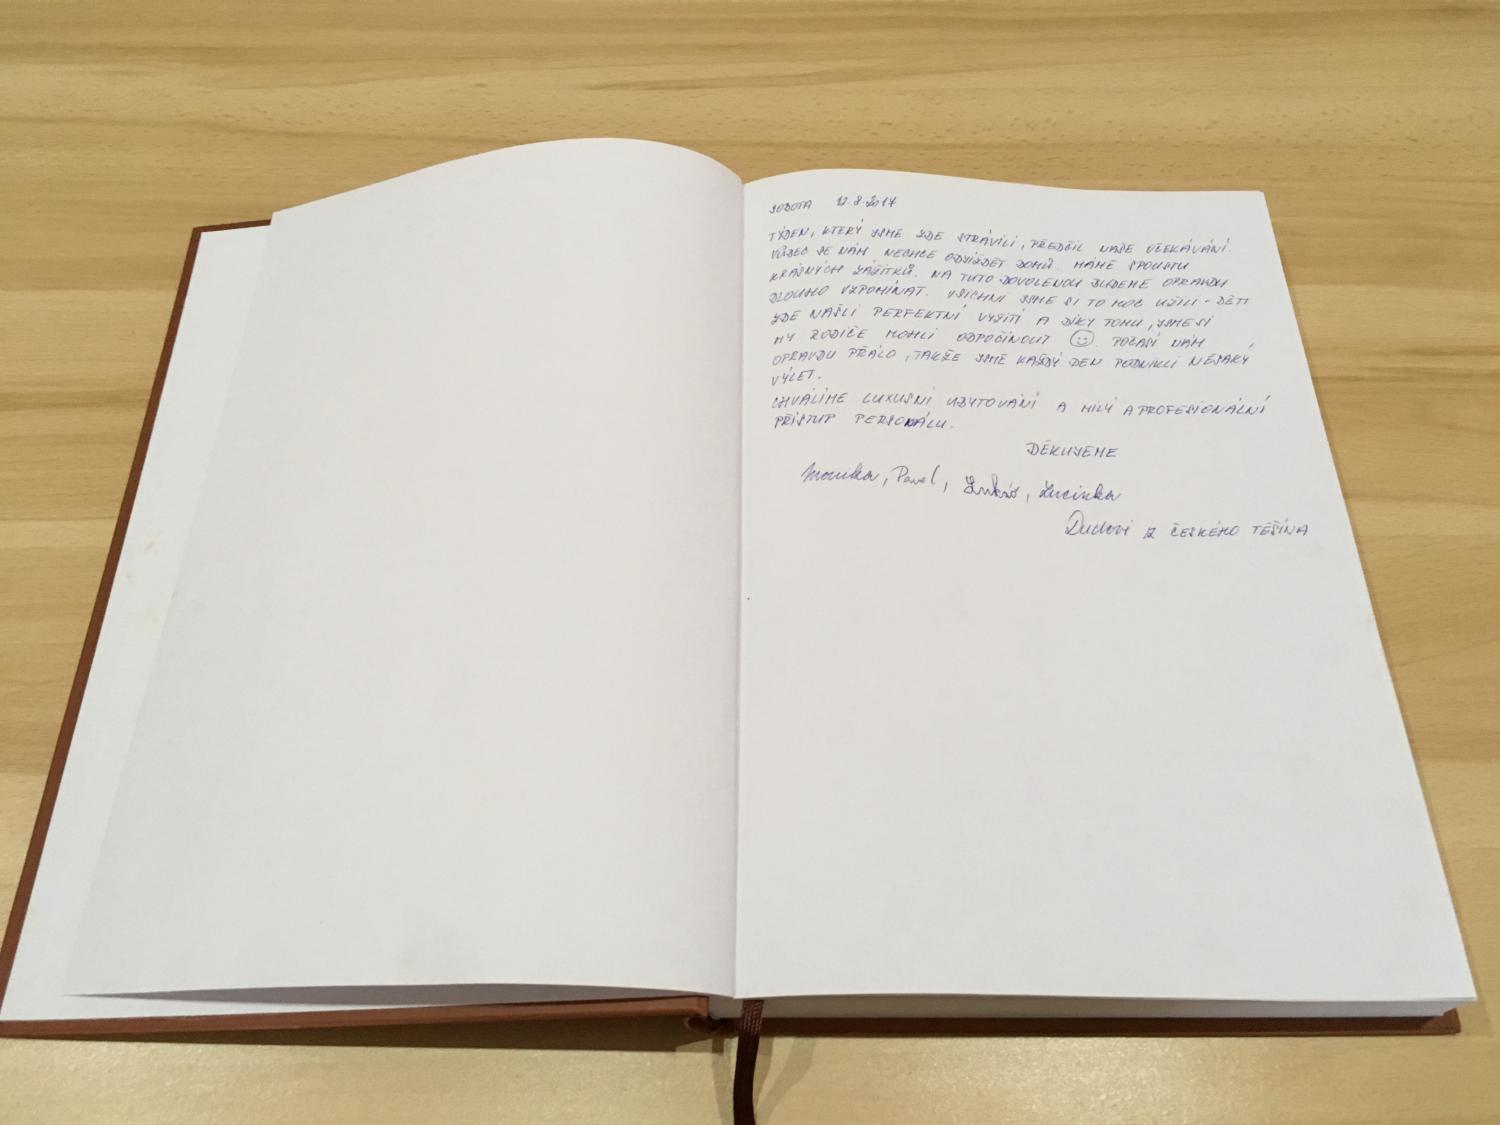 SOBOTA 12.8.2017
TÝDEN, KTERÝ JSME ZDE STRÁVILI, PŘEDČIL NAŠE OČEKÁVÁNÍ.
VŮBEC SE NÁM NECHCE ODJÍŽDĚT DOMŮ. MÁME SPOUSTU
KRÁSNÝCH ZÁŽITKŮ. NA TUTO DOVOLENOU BUDEME OPRAVDU
DLOUHO VZPOMÍNAT. VŠICHNI JSME SI TO MOC UŽILI - DĚTI
ZDE NAŠLI PERFEKTNÍ VYŽITÍ A DÍKY TOMU, JSME SI
MY RODIČE MOHLI ODPOČINOUT ☺. POČASÍ NÁM
OPRAVDU PŘÁLO, TAKŽE JSME KAŽDÝ DEN PODNIKLI NĚJAKÝ
VÝLET.
CHVÁLÍME LUXUSNÍ UBYTOVÁNÍ A MILÝ A PROFESIONÁLNÍ
PŘÍSTUP PERSONÁLU.
DĚKUJEME
Monika, Pavel, Lukáš, Lucinka
Dudovi Z ČESKÉHO TĚŠÍNA